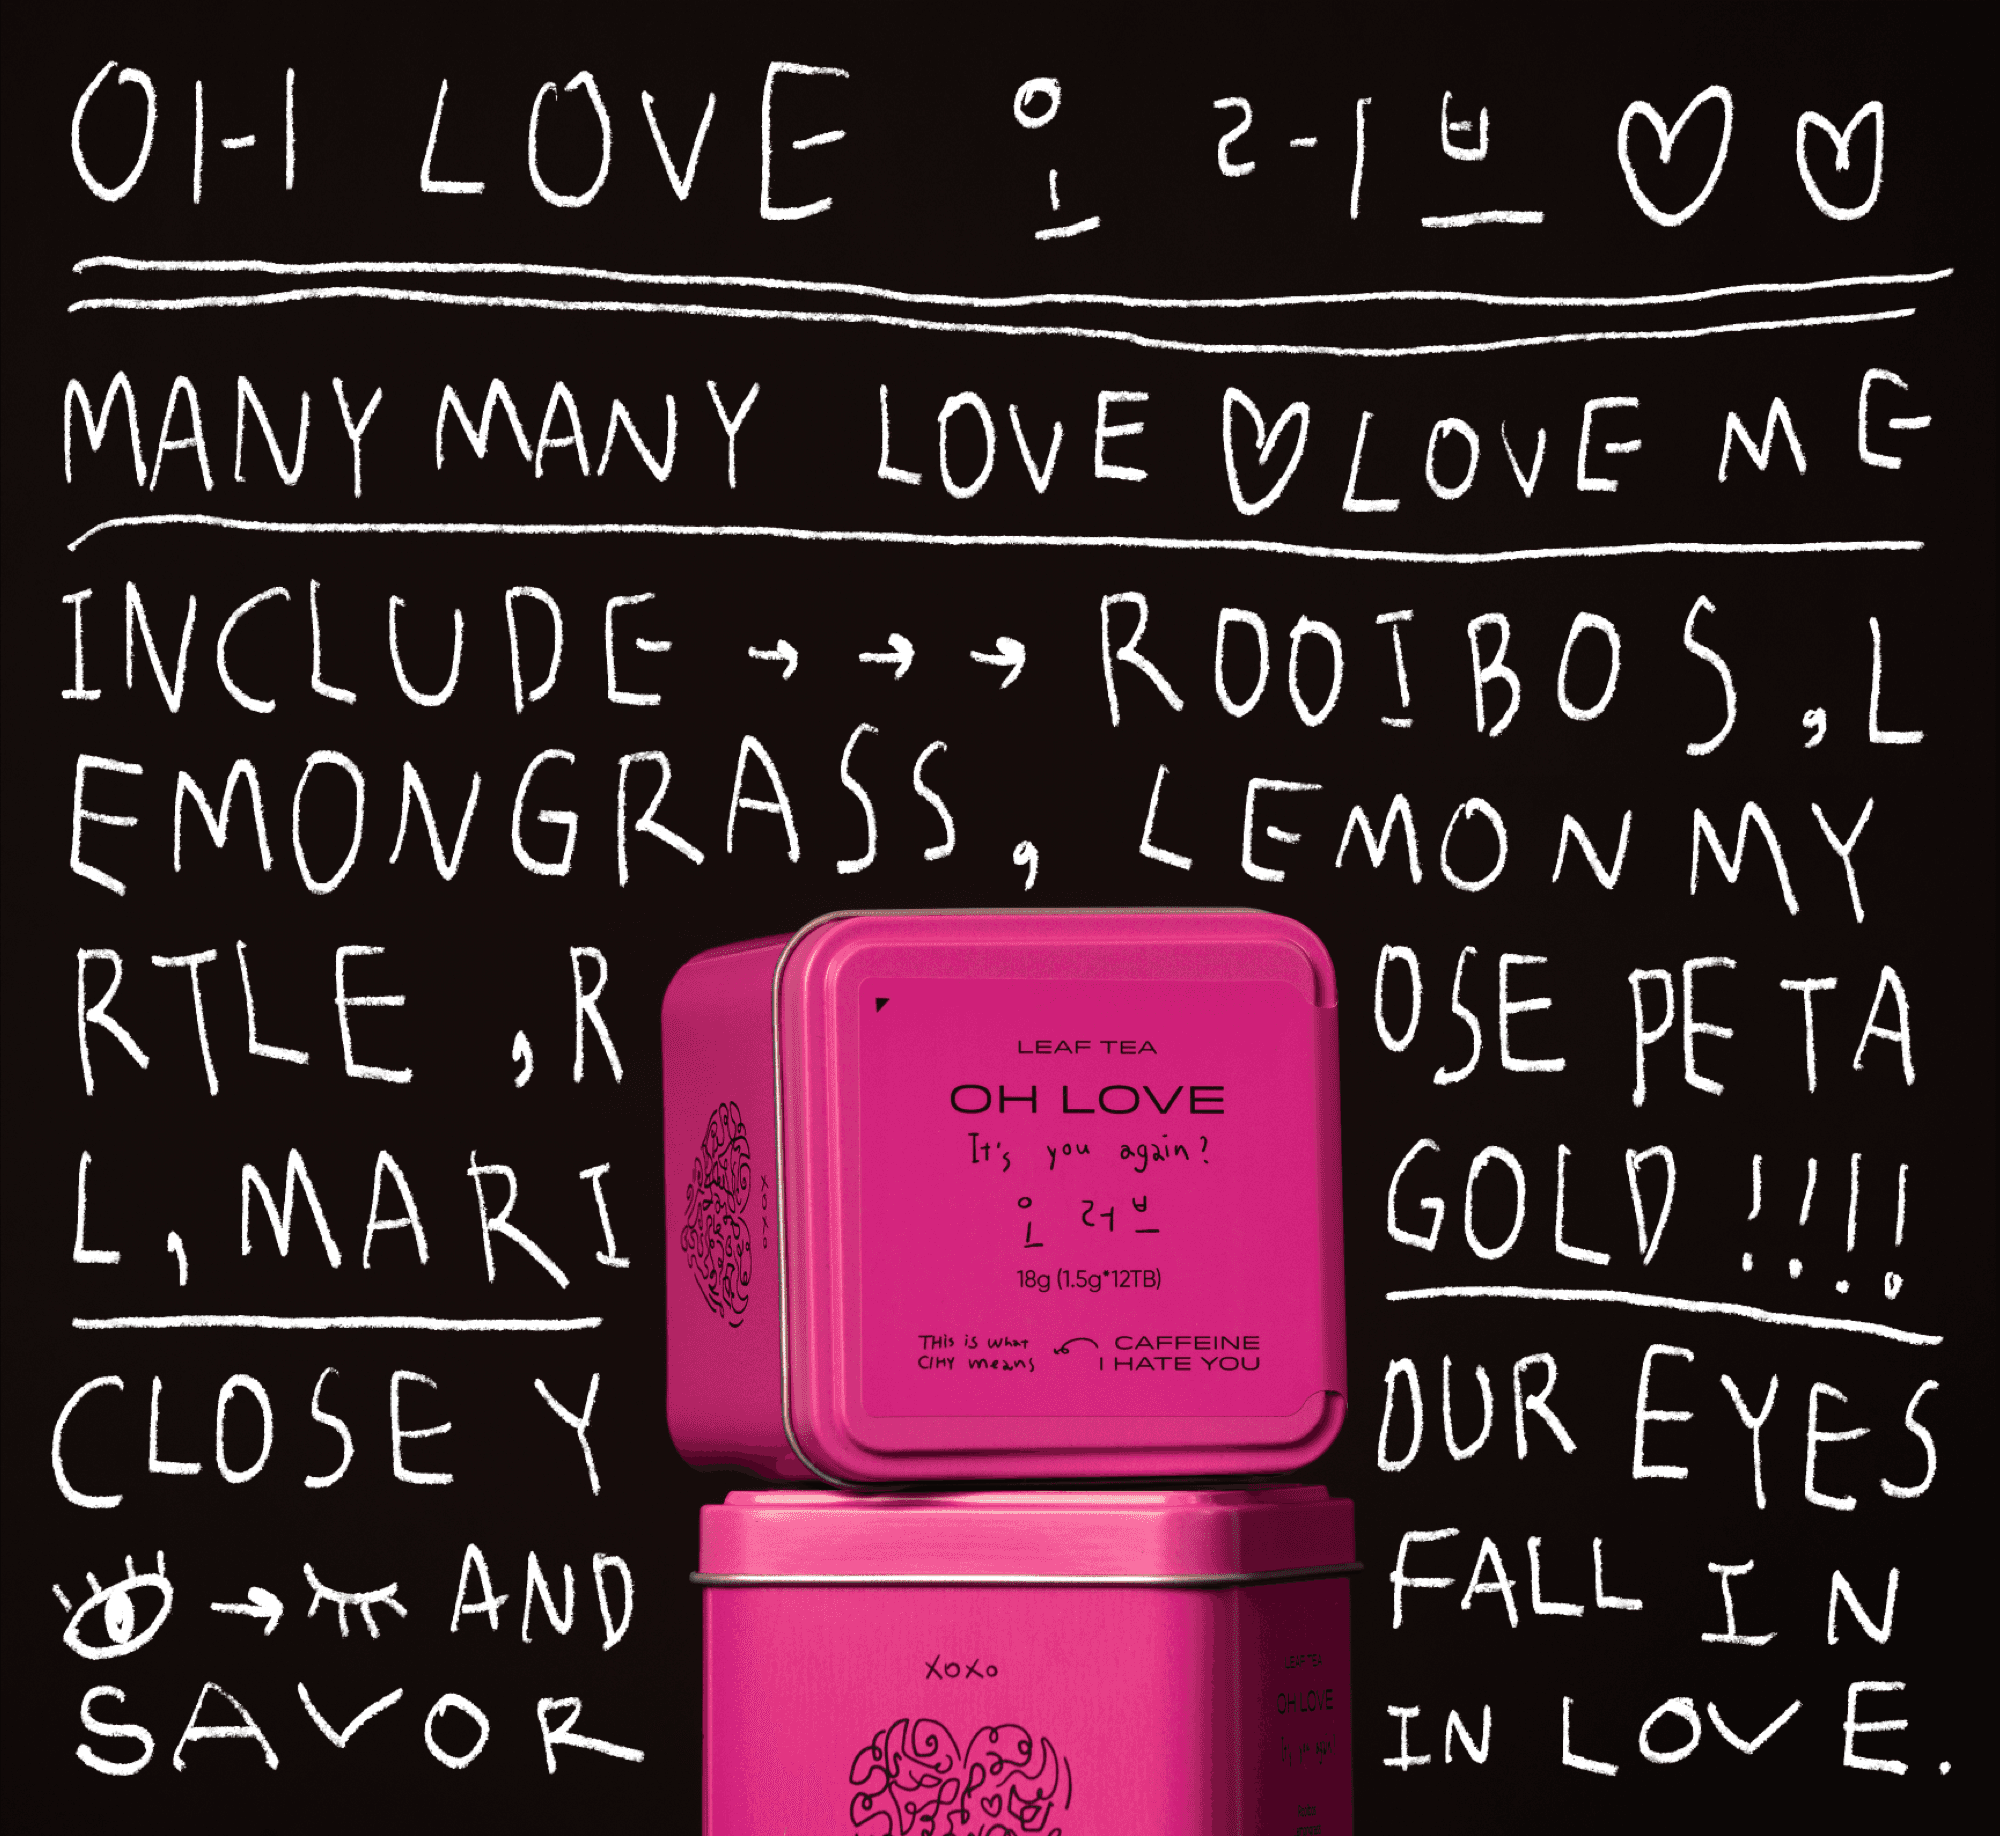 OH LOVE 오 러브 ♡ ♡
MANY MANY LOVE ♡ LOVE ME
INCLUDE → → → ROOIBOS, L
EMONGRASS, LEMON MY
RTLE, R OSE PETA
L, MARI GOLD!!!!
CLOSE Y OUR EYES
→ AND FALL IN
SAVOR IN LOVE.
LEAF TEA
OH LOVE
It's you again?
오 러브
18g (1.5g*12TB)
THis is what CAFFEINE
CIHY means I HATE YOU
XOXO
XOXO
LEAF TEA
OH LOVE